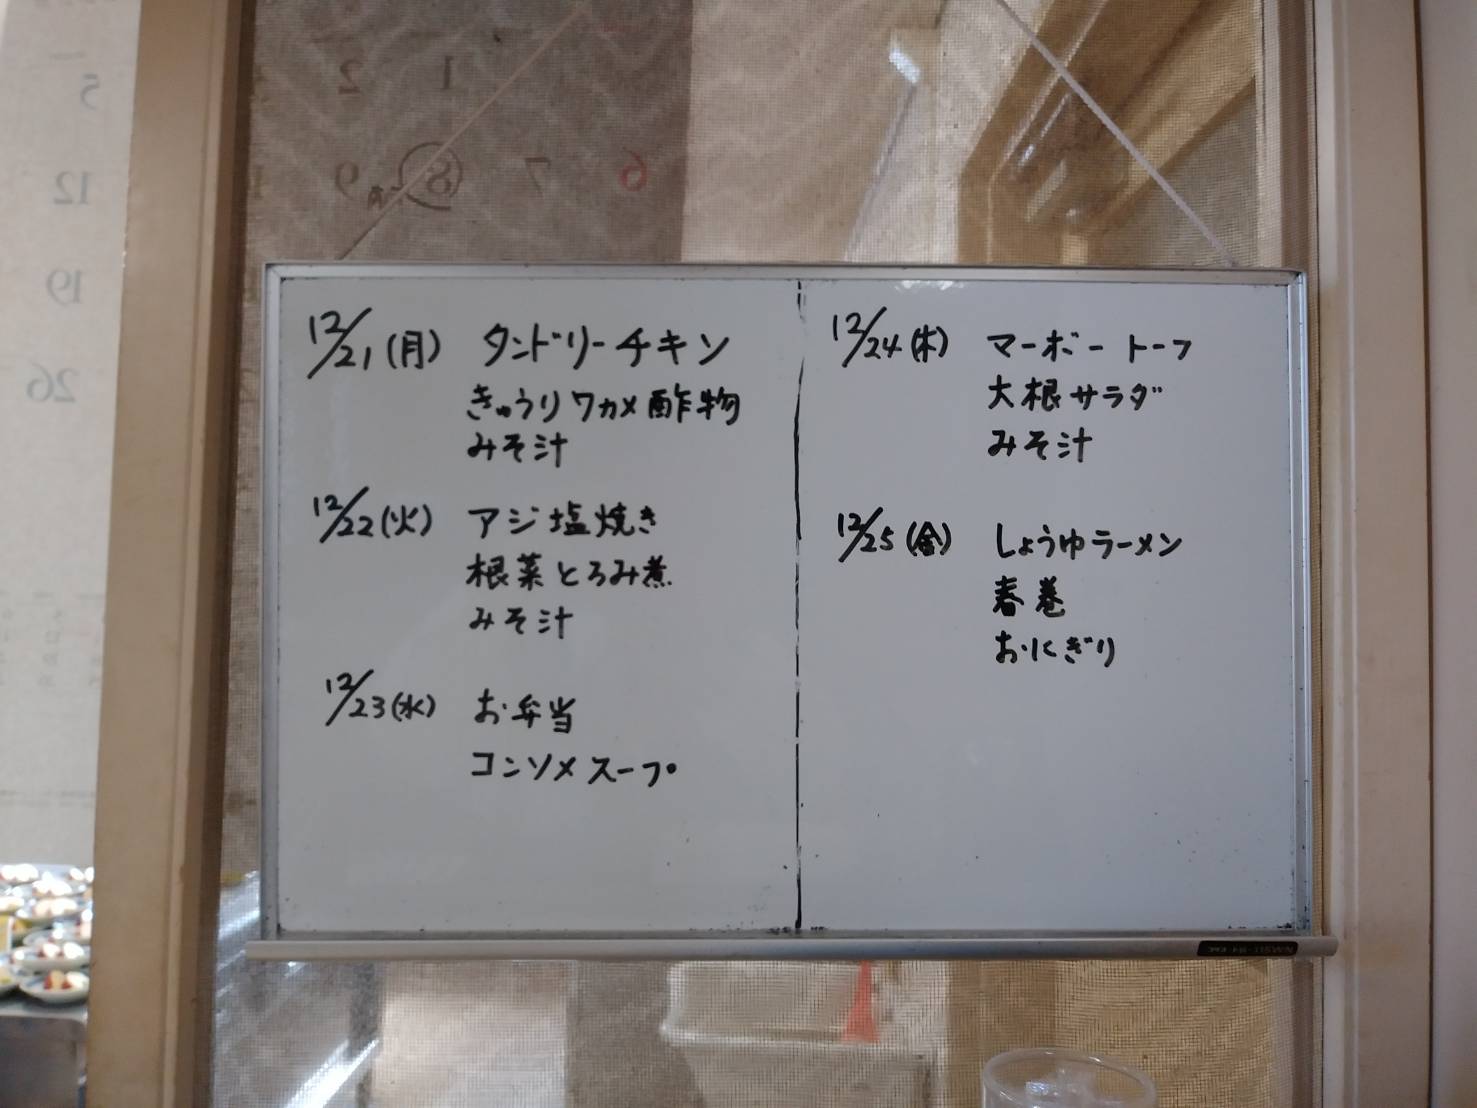 12/21(月) タンドリーチキン
きゅうりワカメ酢物
みそ汁
12/22(火) アジ塩焼き
根菜とろみ煮
みそ汁
12/23(水) お弁当
コンソメスープ
12/24(木) マーボートーフ
大根サラダ
みそ汁
12/25(金) しょうゆラーメン
春巻
おにぎり
1 2
5
6 7 8 9
12
19
26